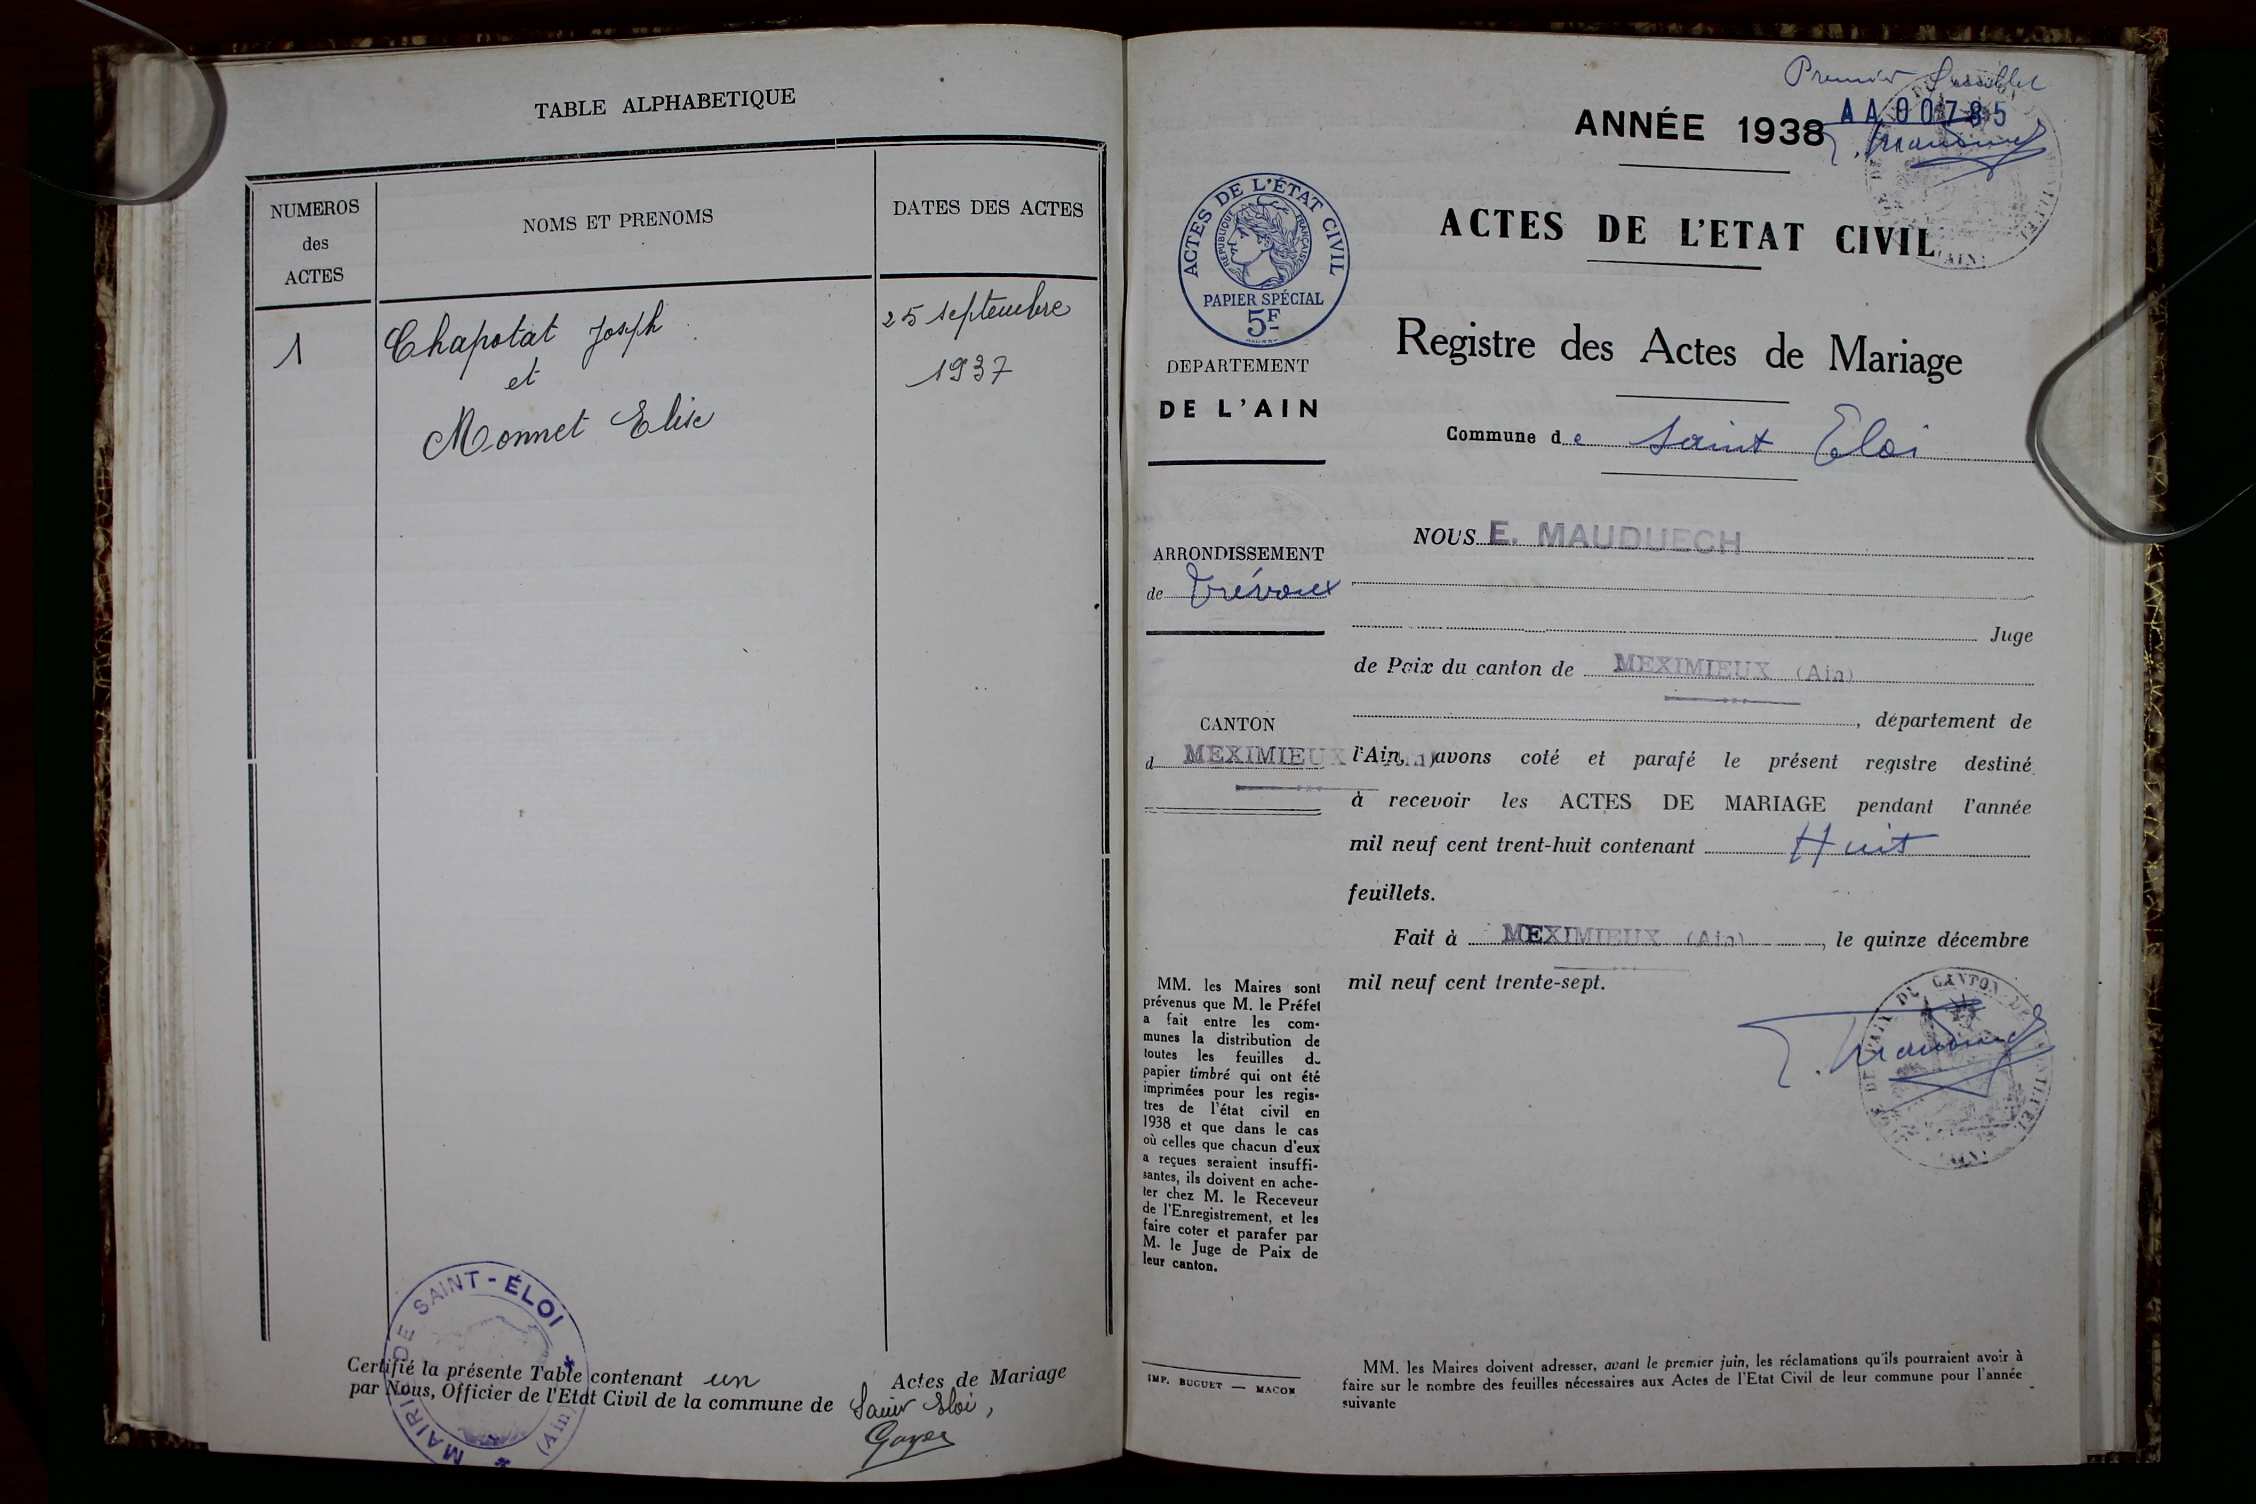 TABLE ALPHABETIQUE
NUMEROS
des
ACTES
NOMS ET PRENOMS
DATES DES ACTES
1
Chapotat Joseph
et
Monnet Elise
25 septembre
1937
MAIRIE DE SAINT-ÉLOI
(Ain)
Certifié la présente Table contenant un Actes de Mariage
par Nous, Officier de l'Etat Civil de la commune de Saint Eloi,
Premier feuillet
ANNÉE 1938
AA00785
ACTES DE L'ETAT CIVIL
ACTES DE L'ÉTAT CIVIL
RÉPUBLIQUE FRANÇAISE
PAPIER SPÉCIAL
5F
Registre des Actes de Mariage
Commune de Saint Eloi
DEPARTEMENT
DE L'AIN
ARRONDISSEMENT
de Trévoux
CANTON
d MEXIMIEUX (Ain)
NOUS E. MAUDUECH
Juge
de Paix du canton de MEXIMIEUX (Ain)
, département de
l'Ain, avons coté et parafé le présent registre destiné
à recevoir les ACTES DE MARIAGE pendant l'année
mil neuf cent trent-huit contenant Huit
feuillets.
Fait à MEXIMIEUX (Ain) , le quinze décembre
mil neuf cent trente-sept.
MM. les Maires sont
prévenus que M. le Préfet
a fait entre les com-
munes la distribution de
toutes les feuilles de
papier timbré qui ont été
imprimées pour les regis-
tres de l'état civil en
1938 et que dans le cas
où celles que chacun d'eux
a reçues seraient insuffi-
santes, ils doivent en ache-
ter chez M. le Receveur
de l'Enregistrement, et les
faire coter et parafer par
M. le Juge de Paix de
leur canton.
IMP. BUGUET — MACON
MM. les Maires doivent adresser, avant le premier juin, les réclamations qu'ils pourraient avoir à
faire sur le nombre des feuilles nécessaires aux Actes de l'Etat Civil de leur commune pour l'année
suivante